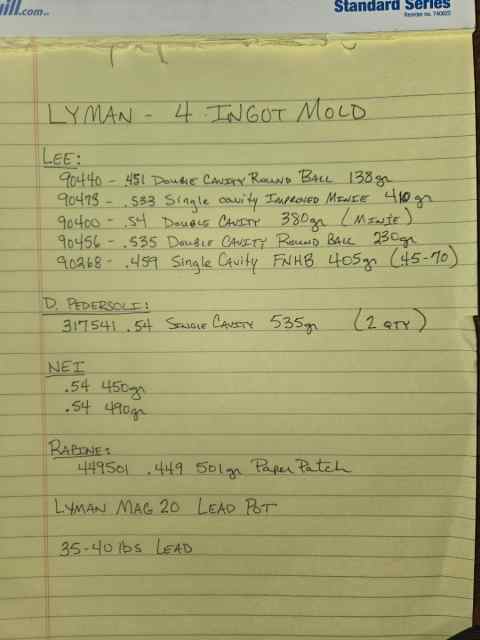 ill.com
Standard Series
Reorder no. 740022
LYMAN - 4 INGOT MOLD
LEE:
90440 - .451 DOUBLE CAVITY ROUND BALL 138gr
90475 - .533 Single cavity IMPROVED MINIE 410gr
90400 - .54 DOUBLE CAVITY 380gr (MINIE)
90456 - .535 DOUBLE CAVITY ROUND BALL 230gr
90268 - .459 Single Cavity FNHB 405gr (45-70)
D. PEDERSOLI:
317541 .54 SINGLE CAVITY 535gr (2 QTY)
NEI
.54 450gr
.54 490gr
RAPINE:
449501 .449 501gr Paper Patch
LYMAN MAG 20 LEAD POT
35-40 lbs LEAD